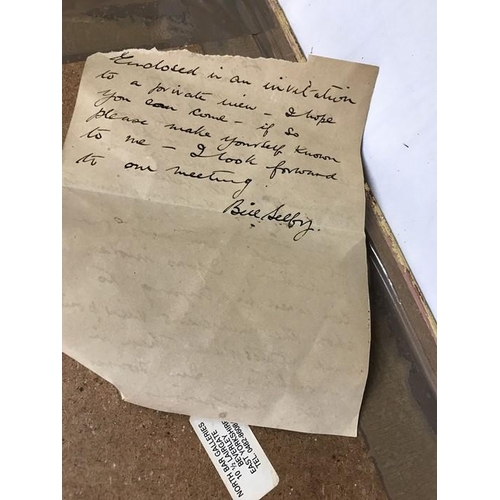 Enclosed is an invitation
to a private view – I hope
you can come – if so
please make yourself known
to me – I look forward
to our meeting.
Bill Selby.
NORTH BAR GALLERIES
10 ½ LAIRGATE
BEVERLEY
EAST YORKSHIRE
TEL 0482-8608